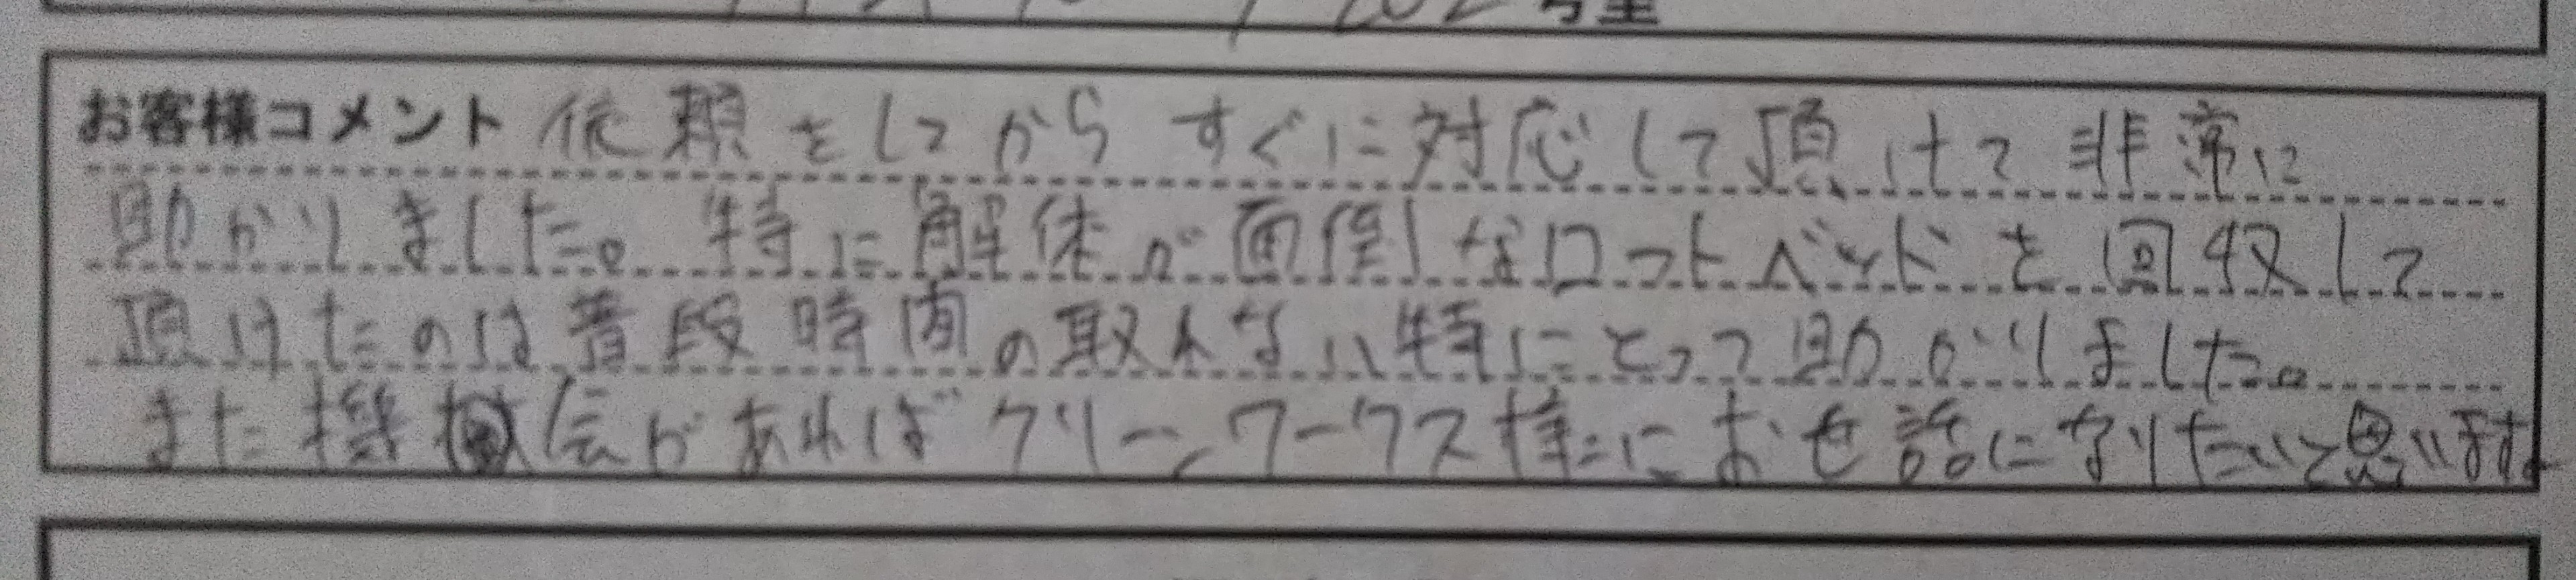 号室
お客様コメント 依頼をしてから すぐに対応して頂けて 非常に
助かりました。特に解体が面倒なロフトベッドを回収して
頂けたのは普段時間の取れない特にとって助かりました。
また機会があればクリーンワークス様にお世話になりたいと思います